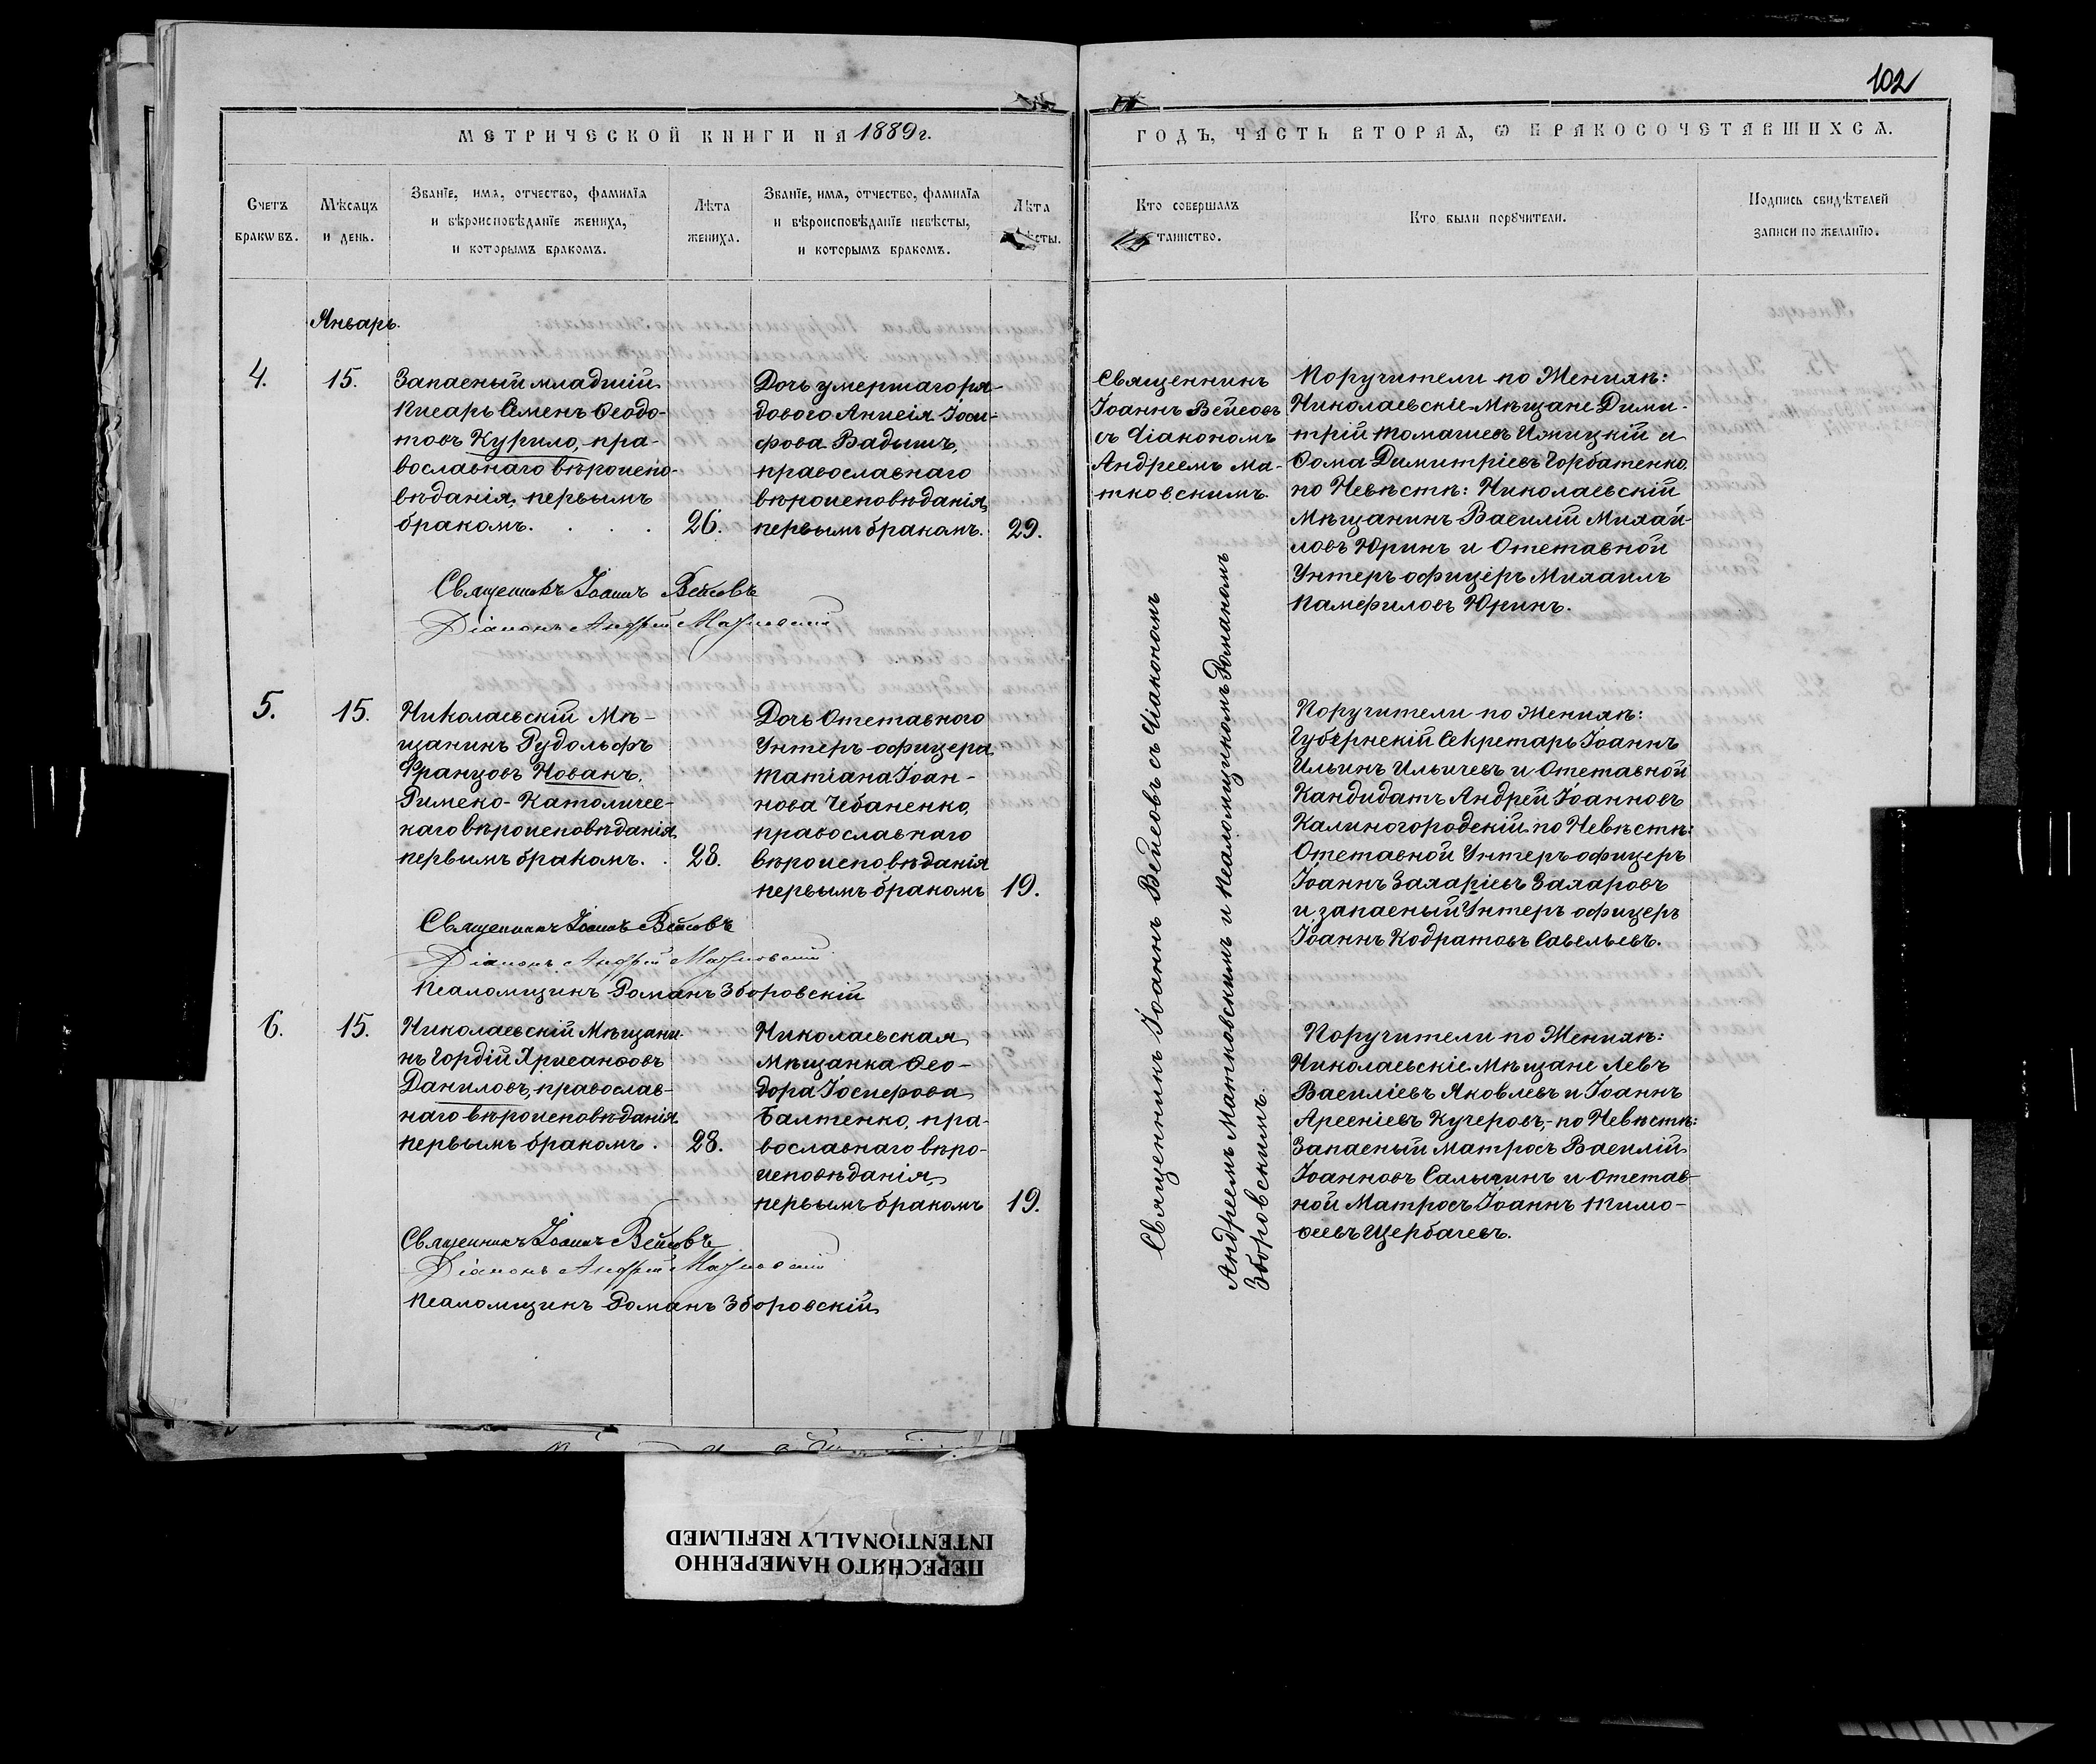 102
МЕТРИЧЕСКОЙ КНИГИ НА 1889 г.
ГОДЪ, ЧАСТЬ ВТОРАЯ, Ѡ БРАКОСОЧЕТАВШИХСЯ.
Счетъ браковъ.
Мѣсяцъ и день.
Званїе, имя, отчество, фамилїя
и вѣроисповѣданїе жениха,
и которымъ бракомъ.
Лѣта
жениха.
Званїе, имя, отчество, фамилїя
и вѣроисповѣданїе невѣсты,
и которымъ бракомъ.
Лѣта
Кто совершалъ
таинство.
Кто были порꙋчители.
Подпись свидѣтелей
записи по желанїю.
Январь.
4.
15.
Запасный младшій
Писарь Семенъ Ѳеодо-
товъ Курило, пра-
вославнаго вѣроиспо-
вѣданія, первымъ
бракомъ.
26.
Дочь умершаго ря-
дового Анисія Іоси-
фова Вадымъ,
православнаго
вѣроисповѣданія,
первымъ бракомъ.
29.
Священникъ
Іоаннъ Вейсовъ
съ Діакономъ
Андреемъ Ма-
тковскимъ.
Поручители по Женихѣ:
Николаевскіе Мѣщане Дими-
трій Томашевъ и
Ѳома Димитріевъ Горбатенко,
по Невѣстѣ: Николаевскій
Мѣщанинъ Василій Михай-
ловъ Юринъ и Отставной
Унтеръ офицеръ Михаилъ
Памфиловъ Юринъ.
Священникъ Іоаннъ Вейсовъ
Діаконъ Андрей Матковскій
5.
15.
Николаевскій Мѣ-
щанинъ Рудольфъ
Францовъ Новакъ,
Римско-Католичес-
каго вѣроисповѣданія
первымъ бракомъ.
28.
Дочь Отставного
Унтеръ-офицера
Татіана Іоан-
нова Чебаненко,
православнаго
вѣроисповѣданія
первымъ бракомъ
19.
Священникъ Іоаннъ Вейсовъ съ Діакономъ
Андреемъ Матковскимъ и Псаломщикомъ Романомъ
Зборовскимъ.
Поручители по Женихѣ:
Губернскій Секретарь Іоаннъ
Ильинъ Ильичевъ и Отставной
Кандидатъ Андрей Іоанновъ
Калиногородскій по Невѣстѣ:
Отставной Унтеръ офицеръ
Іоаннъ Захаріевъ Захаровъ
и запасный Унтеръ офицеръ
Іоаннъ Кодратовъ Савельевъ.
Священникъ Іоаннъ Вейсовъ
Діаконъ Андрей Матковскій
Псаломщикъ Романъ Зборовскій
6.
15.
Николаевскій Мѣщани-
нъ Гордій Хрисанѳовъ
Даниловъ, православ-
наго вѣроисповѣданія
первымъ бракомъ.
28.
Николаевская
Мѣщанка Ѳео-
дора Іосифова
Балтенко, пра-
вославнаго вѣро-
исповѣданія,
первымъ бракомъ
19.
Поручители по Женихѣ:
Николаевскіе Мѣщане Левъ
Василіевъ Яковлевъ и Іоаннъ
Арсеніевъ Кучеровъ, по Невѣстѣ:
Запасный Матросъ Василій
Іоанновъ Салычинъ и Отстав-
ной Матросъ Іоаннъ Тимо-
ѳеевъ Щербачевъ.
Священникъ Іоаннъ Вейсовъ
Діаконъ Андрей Матковскій
Псаломщикъ Романъ Зборовскій
ПЕРЕСНЯТО НАМЕРЕННО
INTENTIONALLY REFILMED